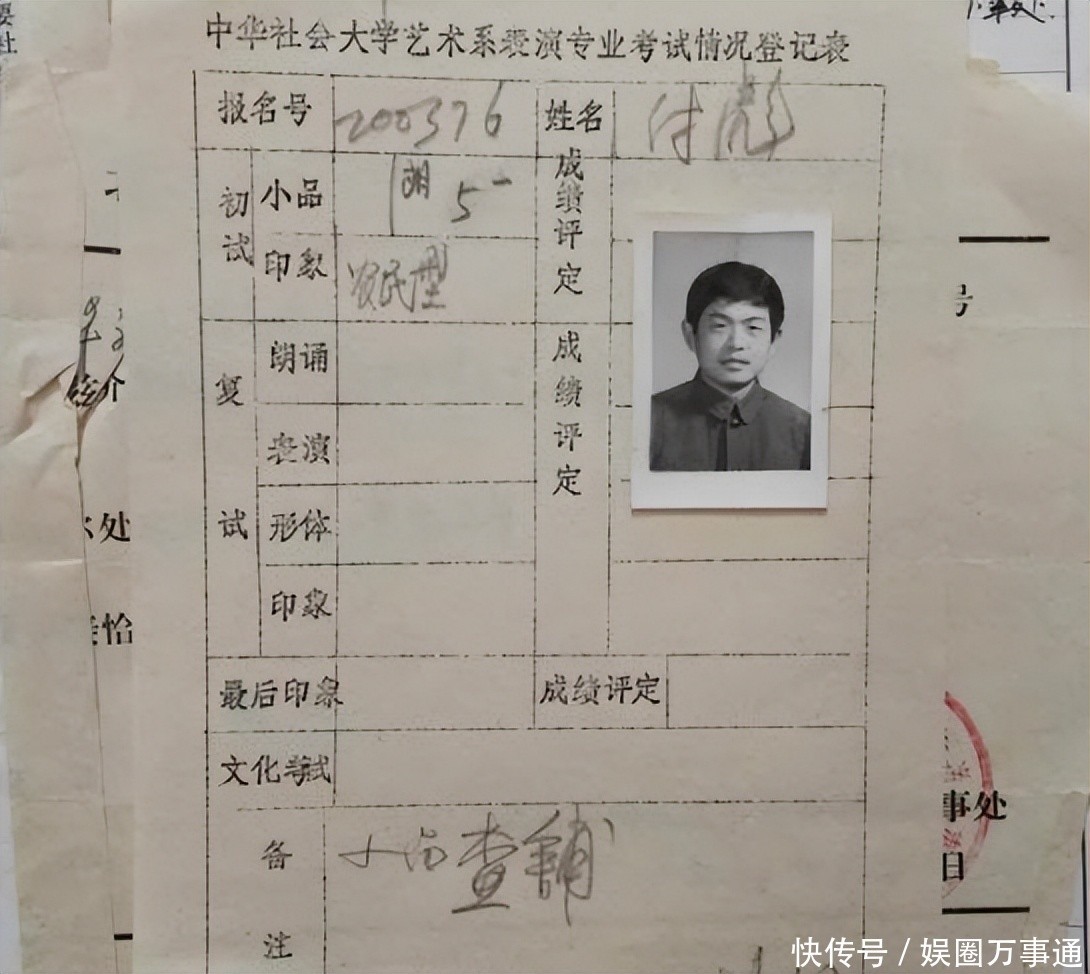 中华社会大学艺术系表演专业考试情况登记表
报名号 200376 姓名 付彪
初试 小品 5- 成绩评定
印象 农民型
复试 朗诵 成绩评定
表演
形体
印象
最后印象 成绩评定
文化考试
备注
处
恰
号
事处
日
快传号 / 娱圈万事通